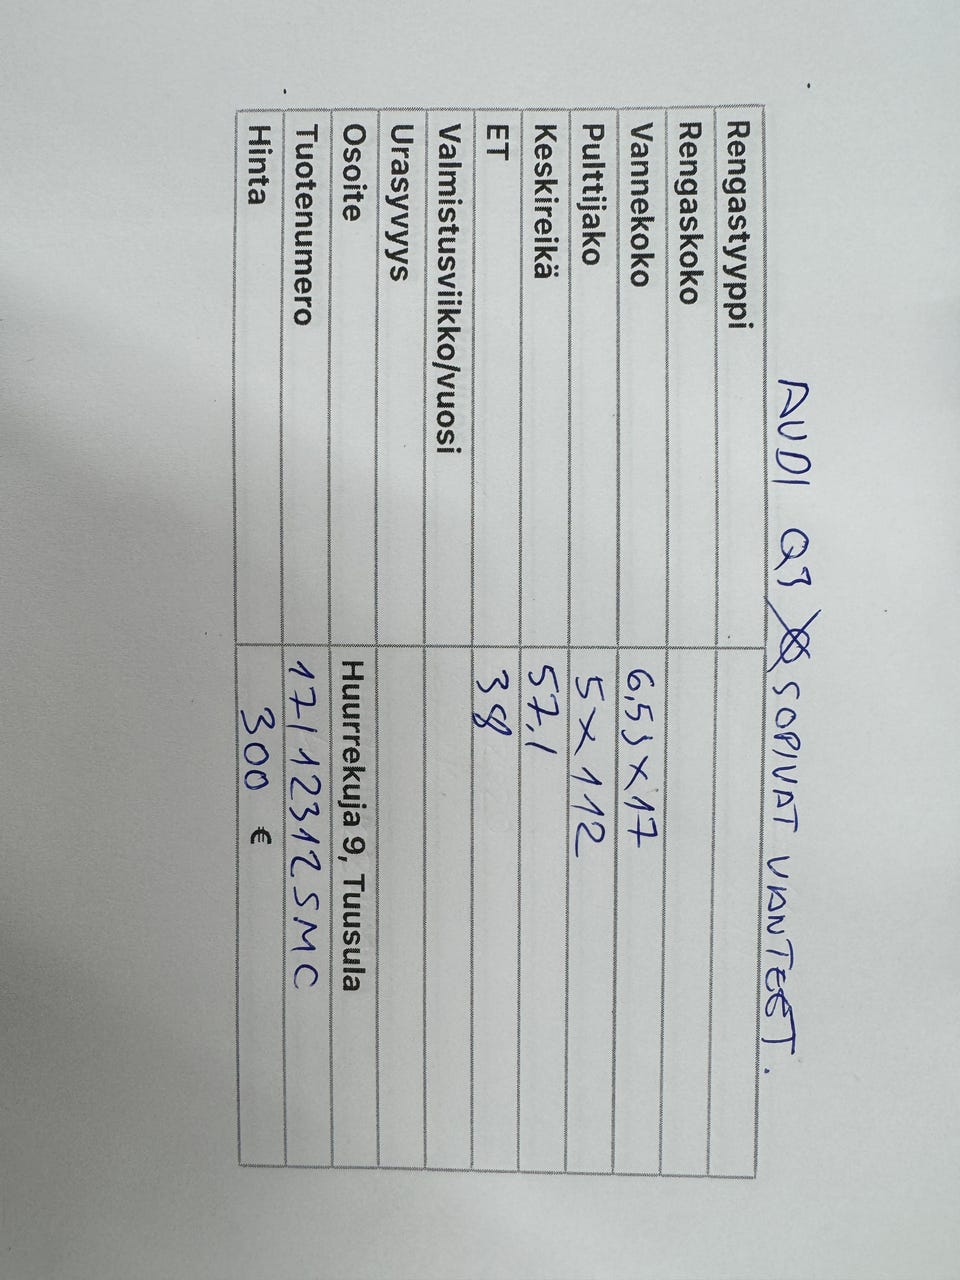 AUDI Q3 SOPIVAT VANTEET.
Rengastyyppi
Rengaskoko
Vannekoko 6,5J x 17
Pulttijako 5 x 112
Keskireikä 57,1
ET 38
Valmistusviikko/vuosi
Urasyvyys
Osoite Huurrekuja 9, Tuusula
Tuotenumero 17112312SMC
Hinta 300 €